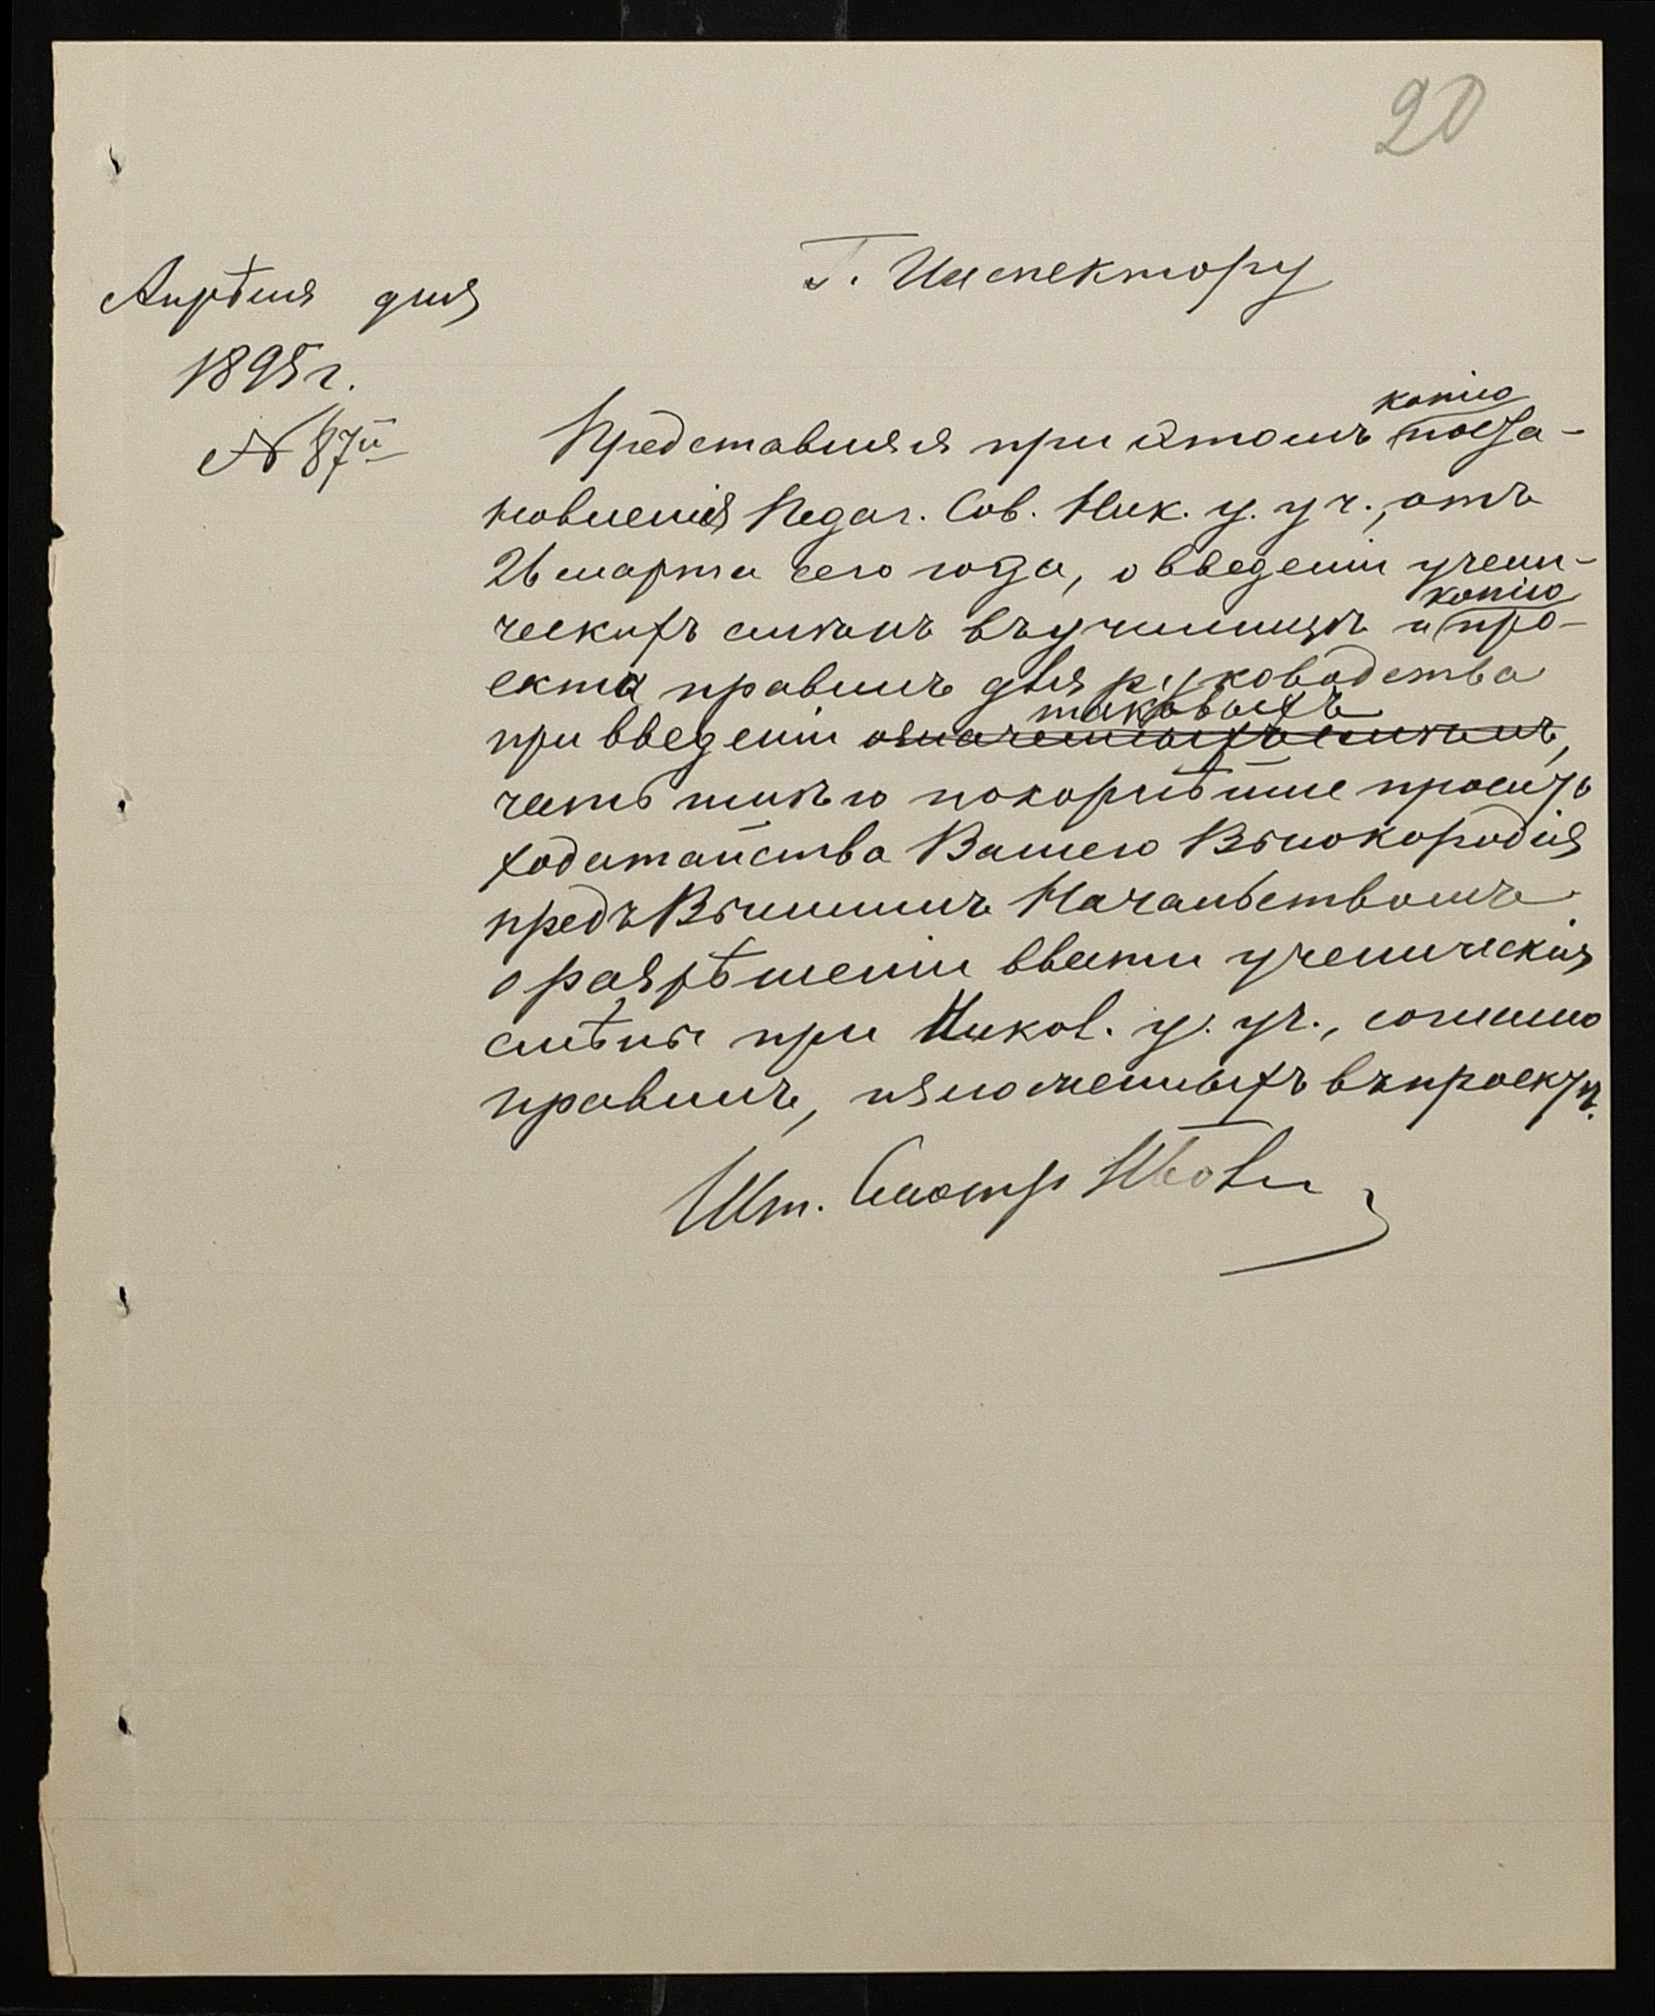 20
Г. Инспектору
Апрѣля дня
1895 г.
№ 87й
копію
Представляя при этомъ поста-
новленія Педаг. Сов. Ник. у. уч., отъ
26 марта сего года, о введеніи учени-
копію
ческихъ смѣнъ въ училищѣ и про-
екта правилъ для руководства
таковыхъ
при введеніи означенныхъ смѣнъ,
честь имѣю покорнѣйше просить
ходатайства Вашего Высокородія
предъ Высшимъ Начальствомъ
о разрѣшеніи ввести ученическія
смѣны при Никол. у. уч., согласно
правилъ, изложенныхъ въ проектѣ.
Шт. Смотр